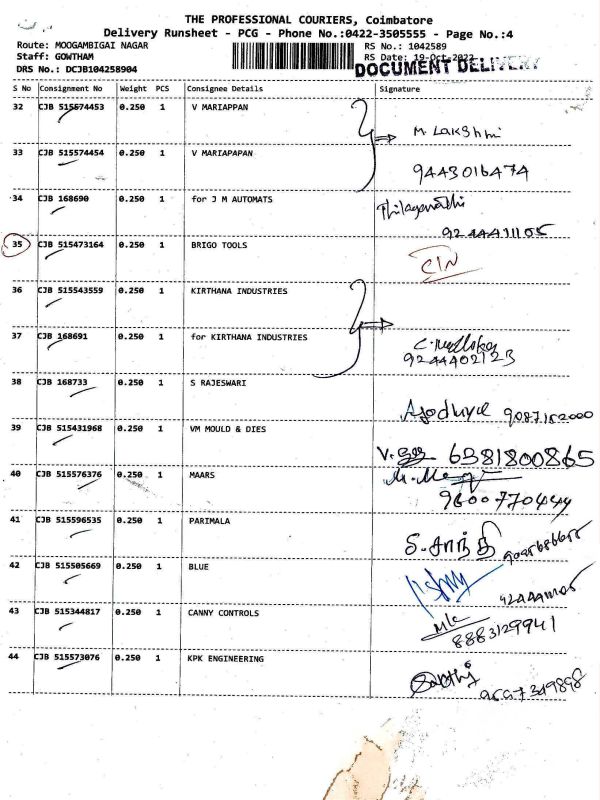 THE PROFESSIONAL COURIERS, Coimbatore
Delivery Runsheet - PCG - Phone No.:0422-3505555 - Page No.:4
Route: MOOGAMBIGAI NAGAR RS No.: 1042589
Staff: GOWTHAM RS Date: 19-Oct-2022
DRS No.: DCJB104258904 DOCUMENT DELIVERY
S No Consignment No Weight PCS Consignee Details Signature
32 CJB 515574453 0.250 1 V MARIAPPAN M. Lakshmi
33 CJB 515574454 0.250 1 V MARIAPAPAN 9443016474
34 CJB 168690 0.250 1 for J M AUTOMATS
35 CJB 515473164 0.250 1 BRIGO TOOLS
36 CJB 515543559 0.250 1 KIRTHANA INDUSTRIES
37 CJB 168691 0.250 1 for KIRTHANA INDUSTRIES 9244402123
38 CJB 168733 0.250 1 S RAJESWARI
39 CJB 515431968 0.250 1 VM MOULD & DIES 6381800865
40 CJB 515576376 0.250 1 MAARS 9600770444
41 CJB 515596535 0.250 1 PARIMALA சாந்தி
42 CJB 515505669 0.250 1 BLUE
43 CJB 515344817 0.250 1 CANNY CONTROLS 8883129941
44 CJB 515573076 0.250 1 KPK ENGINEERING